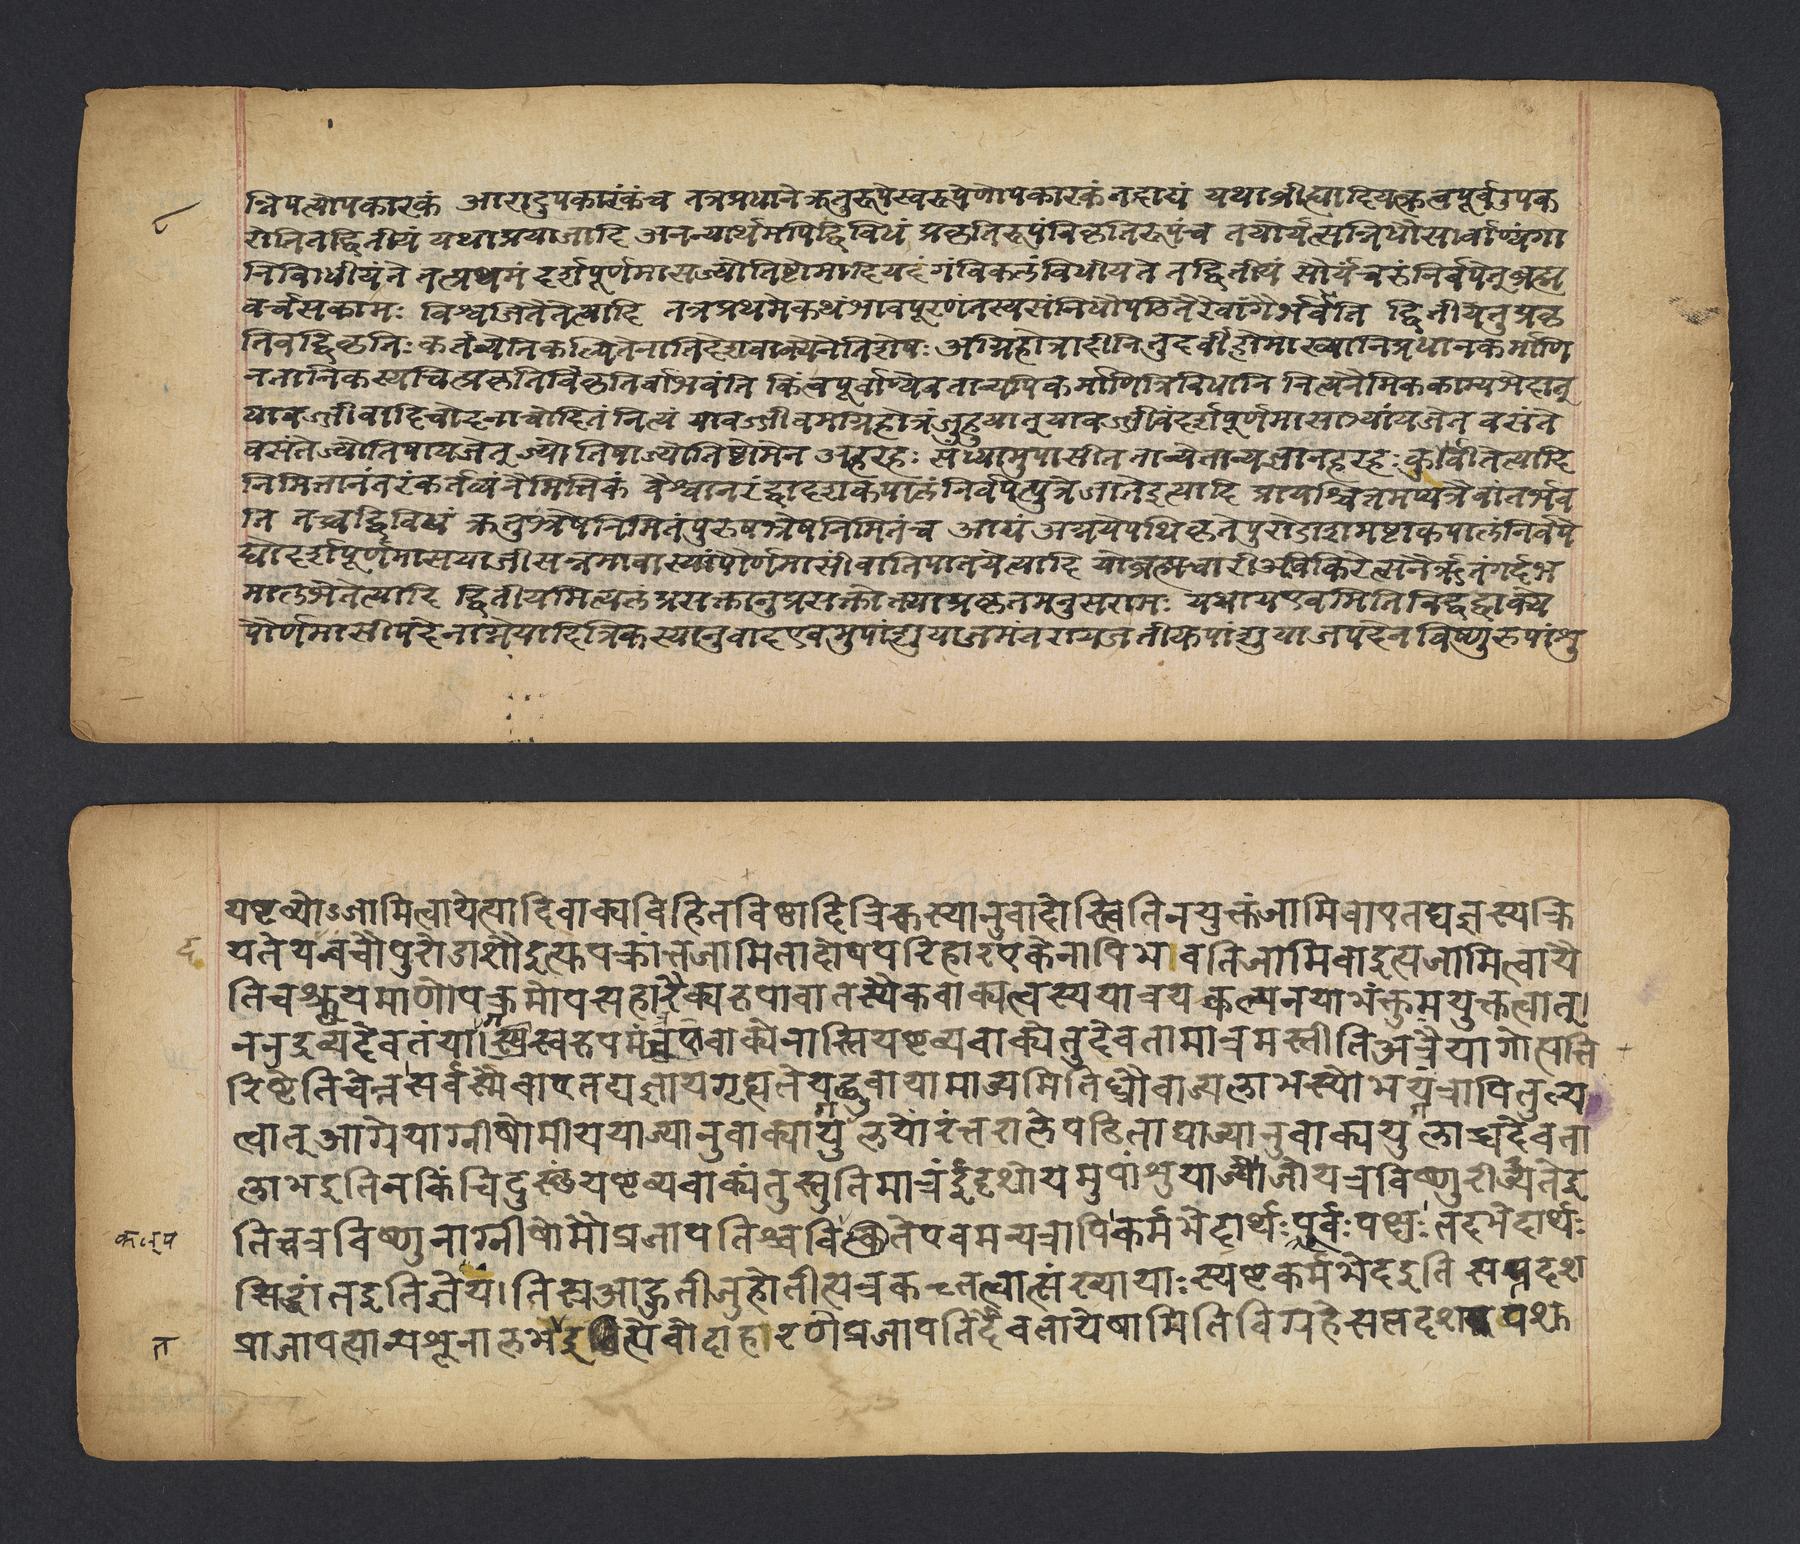 न्निपत्योपकारकं आरादुपकारकंच तत्रप्रधाने क्रतुरूपेस्वरूपेणोपकारकंतदाद्यं यथाव्रीह्यादियत्क्रत्वपूर्वउपक
रोतितद्द्वितीयं यथाप्रयाजादि अनन्यार्थमपिद्विविधं प्रकृतिरूपंविकृतिरूपंच तयोर्यत्सन्निधौसर्वाण्यंगा
निविधीयंते तत्प्रथमं दर्शपूर्णमासज्योतिष्टोमादियदंगंविकलंविधीयते तद्द्वितीयं सौर्यंचरुंनिर्वपेत्ब्रह्म
वर्चसकामः विश्वजितेतेत्यादि तत्रप्रथमेकथंभावपूरणंतस्यसंनिधौपठितैरेवांगैर्भवति द्वितीयेतुप्रकृ
तिवद्विकृतिः कर्तव्येतिकल्पितेनातिदेशवाक्येनेतिशेषः अग्निहोत्रादीनितुदर्वीहोमाख्यानिप्रधानकर्माणि
नतानिकस्यचित्प्रकृतिर्विकृतिर्वाभवंति किंचपूर्वाण्येवतान्यपिकर्माणित्रिविधानि नित्यनैमिककाम्यभेदात्
यावज्जीवादिचोदनाचोदितंनित्यं यावज्जीवमग्निहोत्रंजुहुयात्यावज्जीवंदर्शपूर्णमासाभ्यांयजेत वसंते
वसंतेज्योतिषायजेत् ज्योतिषाज्योतिष्टोमेन अहरहः संध्यामुपासीत नान्येतान्यज्ञानहरहः कुर्वीतेत्यादि
निमित्तानंतरंकर्तव्यंनैमित्तिकं वैश्वानरंद्वादशकपालंनिर्वपेत्पुत्रेजातेइत्यादि प्रायश्चित्तमप्यत्रैवांतर्भव
ति तच्चद्विविधं क्रतुभ्रेषनिमित्तंपुरुषभ्रेषनिमित्तंच आद्यं अग्नयेपथिकृतेपुरोडाशमष्टाकपालंनिर्वपे
द्योदर्शपूर्णमासयाजीसन्नमावास्यांपौर्णमासींवातिपातयेत्यादि योब्रह्मचारीअवकिरेत्सनैर्ऋतंगर्दभ
मालभेतेत्यादि द्वितीयमित्यलंप्रसक्तानुप्रसक्तोत्त्याप्रकृतमनुसरामः यथायएवमितिविद्वद्वाक्य
पौर्णमासीपदेनाग्नेयादित्रिकस्यानुवादएवमुपांशुयाजमंतरायजतीत्युपांशुयाजपदेन विष्णुरुपांशु
यष्टव्योऽजामित्वायेत्यादिवाक्यविहितविष्ण्वादित्रिकस्यानुवादोस्त्वितिनयुक्तंजामिवाएतद्यज्ञस्यक्रि
यतेयन्वचौपुरोडाशौइत्युपक्रांतजामितादोषपरिहारएकेनापिभावतिजामिवाइत्यजामित्वायै
तिचश्रूयमाणोपक्रमोपसंहारैक्यरूपावातस्यैकवाक्यत्वस्ययात्रयकल्पनयाभंक्तुमयुक्तत्वात्।
ननुद्रव्यदेवतंयागस्यस्वरूपमंतरावाक्येनास्तियष्टव्यवाक्येतुदेवतामात्रमस्तीतिअत्रैयागोत्पत्ति
रिष्टेतिचेन्नसर्वस्मैवाएतद्यज्ञायगृह्यतेयद्ध्रुवायामाज्यमितिध्रौवाज्यलाभस्योभयत्रापितुल्य
त्वात्आग्नेयाग्नीषोमीययाज्यानुवाक्यायुगलयोरंत्तरालेपठिताद्याज्यानुवाक्ययुगलाच्चदेवता
लाभइतिनकिंचिदुस्थंयष्टव्यवाक्यंतुस्तुतिमात्रंईदृशोयमुपांशुयाज्योजोयत्रविष्णुरीज्यतेइ
तिच्चत्रविष्णुनाग्नीषोमौप्रजापतिश्चविकल्प्यतेएवमन्यत्रापिकर्मभेदार्थः पूर्वः पक्षः तदभेदार्थः
सिद्धांतइतिज्ञेयं। तिस्रआहुतीजुहोतीत्यत्रकर्तृत्वात्संख्यायाः स्पष्टकर्मभेदइति सप्तदश
प्राजापत्यान्पशूनालभेतइत्येवोदाहारणेप्रजापतिर्देवतायेषामितिविग्रहेसप्तदशपशु
कल्प्य
त